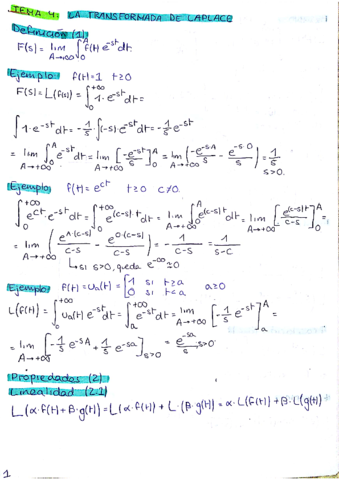 TEMA 4: LA TRANSFORMADA DE LAPLACE
Definición (1)
F(s) = lim A→+∞ ∫₀^A f(t) e^{-st} dt.
Ejemplo: f(t)=1 t≥0
F(s) = L(f(s)) = ∫₀^{+∞} 1·e^{-st} dt =
∫ 1·e^{-st} dt = -1/s ∫ (-s) e^{-st} dt = -1/s e^{-st}
= lim A→+∞ ∫₀^A e^{-st} dt = lim A→+∞ [-e^{-st}/s]₀^A = lim A→+∞ (-e^{-sA}/s - e^{-s·0}/s) = 1/s s>0.
Ejemplo: f(t) = e^{ct} t≥0 c≠0.
∫₀^{+∞} e^{ct}·e^{-st} dt = ∫₀^{+∞} e^{(c-s)t} dt = lim A→+∞ ∫₀^A e^{(c-s)t} dt = lim A→+∞ [e^{(c-s)t}/(c-s)]₀^A =
= lim A→+∞ (e^{A·(c-s)}/(c-s) - e^{0·(c-s)}/(c-s)) = -1/(c-s) = 1/(s-c)
↳ si s>0, queda e^{-∞} ≃ 0
Ejemplo: f(t) = u_a(t) = [1 si t≥a
0 si t<a a≥0
L(f(t)) = ∫₀^{+∞} u_a(t) e^{-st} dt = ∫_a^{+∞} e^{-st} dt = lim A→+∞ [-1/s e^{-st}]_a^A =
= lim A→+∞ [-1/s e^{-sA} + 1/s e^{-sa}] s>0 = e^{-sa}/s, s>0.
Propiedades (2)
Linealidad (2.1)
L(α·f(t)+β·g(t)) = L(α·f(t)) + L·(β·g(t)) = α·L(f(t)) + β·L(g(t))
1